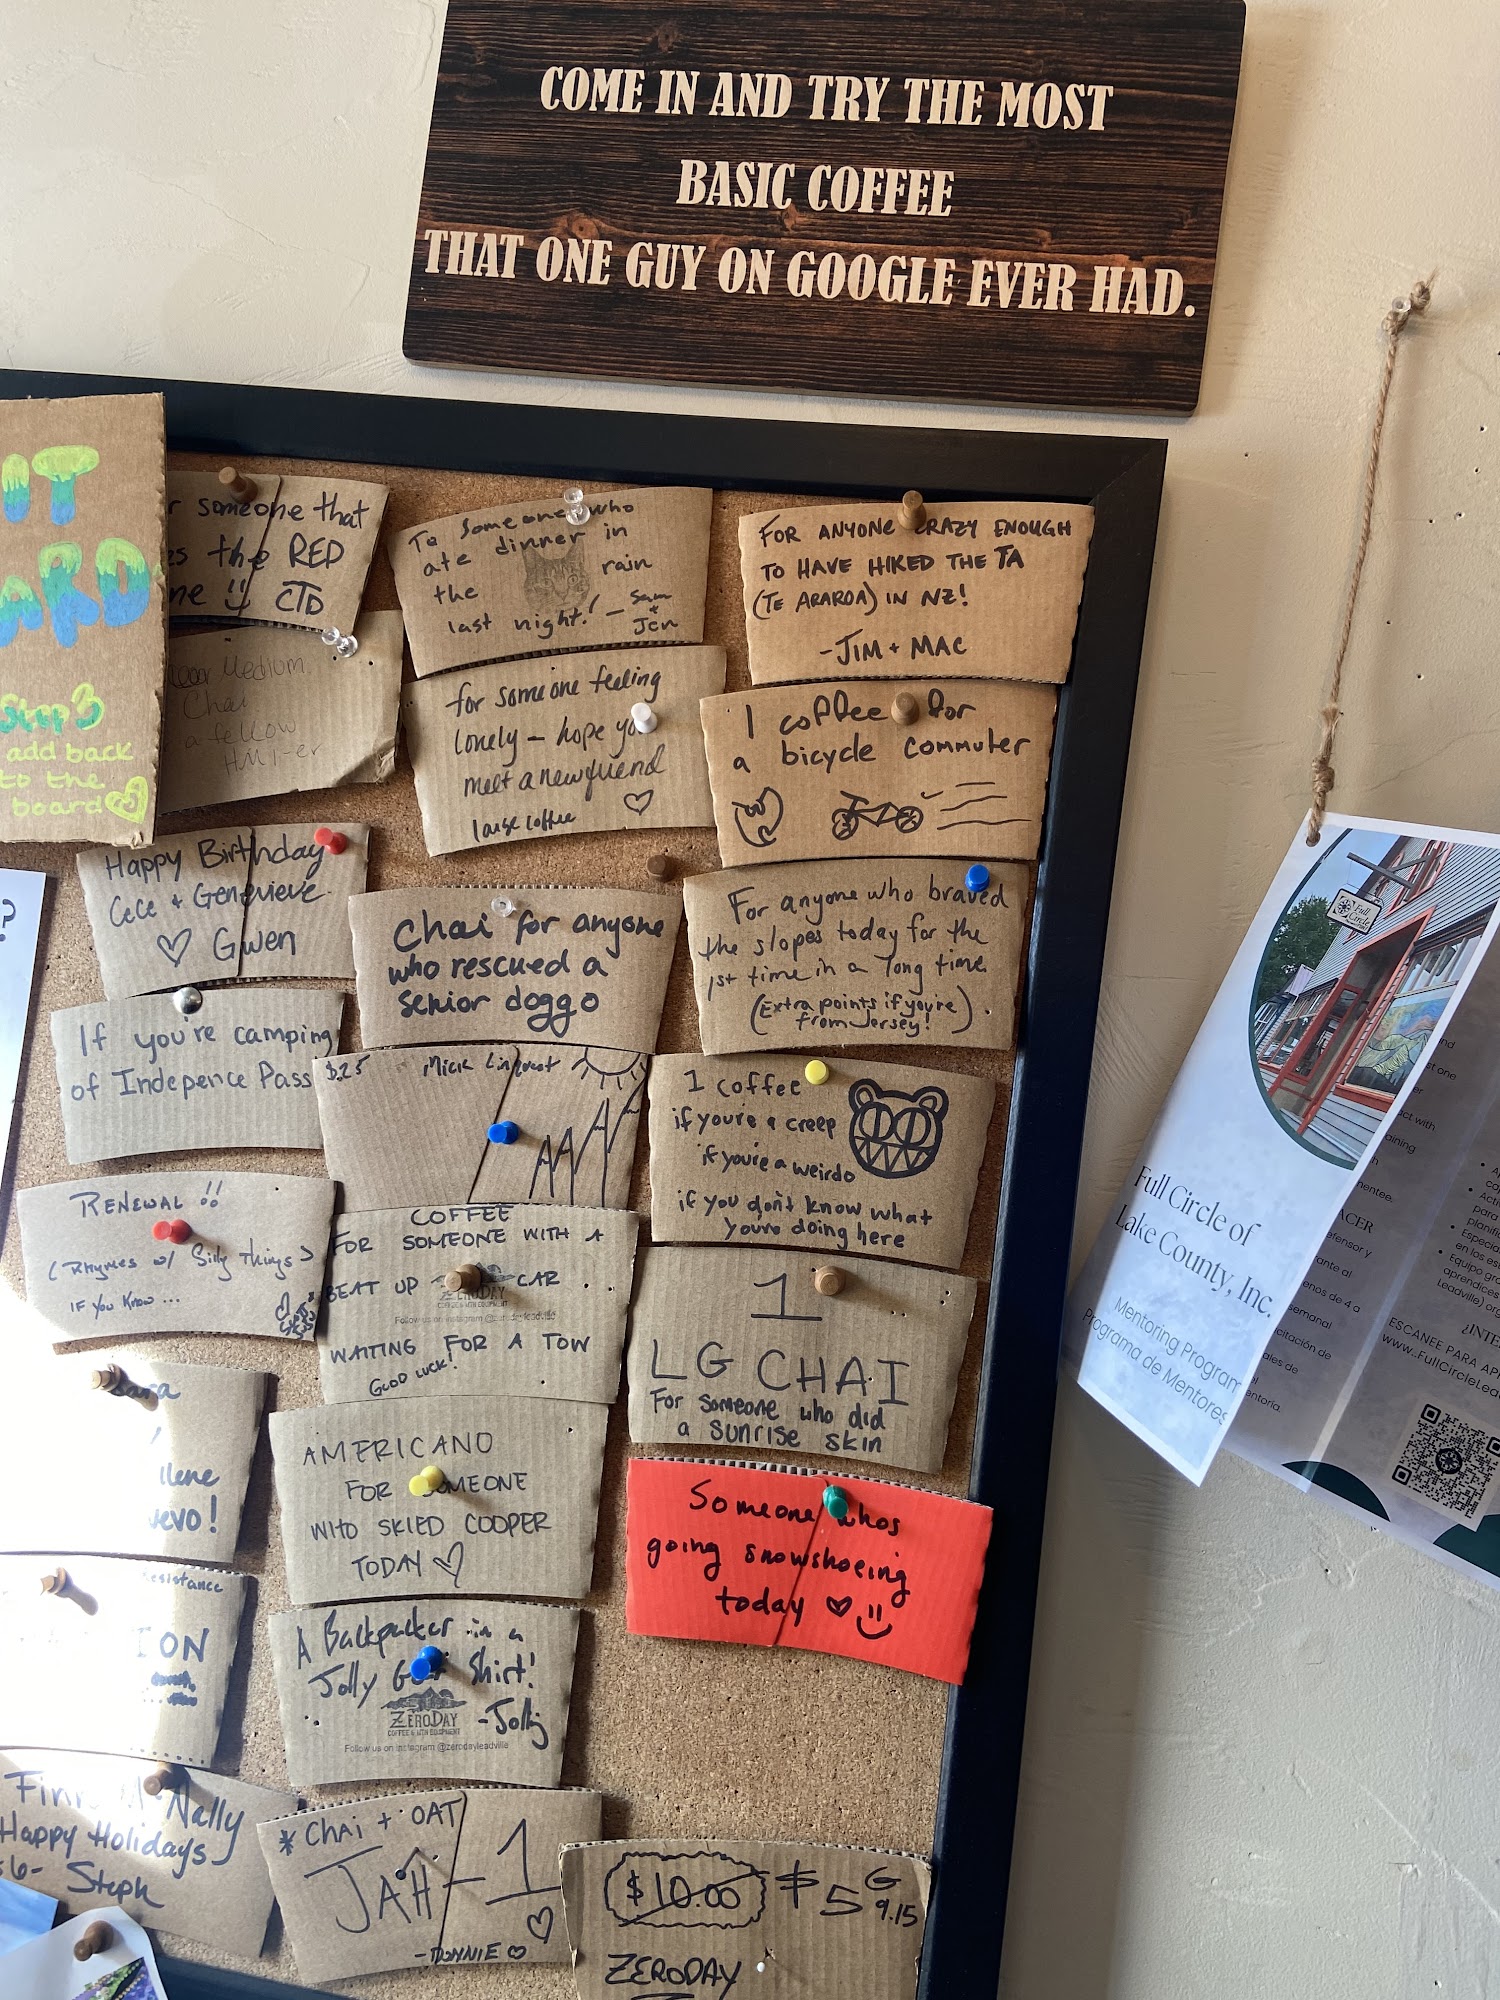 COME IN AND TRY THE MOST
BASIC COFFEE
THAT ONE GUY ON GOOGLE EVER HAD.
IT
ARD
Step 3
add back
to the
board
someone that
the RED
CTD
Medium
Chai
a fellow
To someone who
ate dinner in
the rain
last night! - Sam
+
Jen
for someone feeling
lonely - hope you
meet a new friend
large coffee
FOR ANYONE CRAZY ENOUGH
TO HAVE HIKED THE TA
(TE ARAROA) IN NZ!
-JIM + MAC
1 coffee for
a bicycle commuter
Happy Birthday
CeCe + Genevieve
Gwen
Chai for anyone
who rescued a
senior doggo
For anyone who braved
the slopes today for the
1st time in a long time
(Extra points if you're
from Jersey!)
If you're camping
of Indepence Pass
$.25
1 coffee
if you're a creep
if you're a weirdo
if you don't know what
you're doing here
RENEWAL !!
(Rhymes w/ Silly Things)
IF You Know ...
COFFEE
FOR SOMEONE WITH A
BEAT UP CAR
ZERODAY
COFFEE & MTN EQUIPMENT
Follow us on Instagram @zerodayleadville
WAITING FOR A TOW
GOOD LUCK!
1
LG CHAI
For someone who did
a sunrise skin
ara
ilene
uevo!
AMERICANO
FOR SOMEONE
WHO SKIED COOPER
TODAY
Someone whos
going snowshoeing
today
esistance
ION
A Backpacker in a
Jolly Gear Shirt!
-Jolly
ZERODAY
COFFEE & MTN EQUIPMENT
Follow us on Instagram @zerodayleadville
Finn McNally
Happy Holidays
- Steph
* CHAI + OAT
JAH - 1
- DONNIE
$10.00 $5 G
9.15
ZERODAY
?
Full Circle
Full Circle of
Lake County, Inc.
Mentoring Program
Programa de Mentores
ESCANEE PARA
www.FullCircleLea
¿INTE